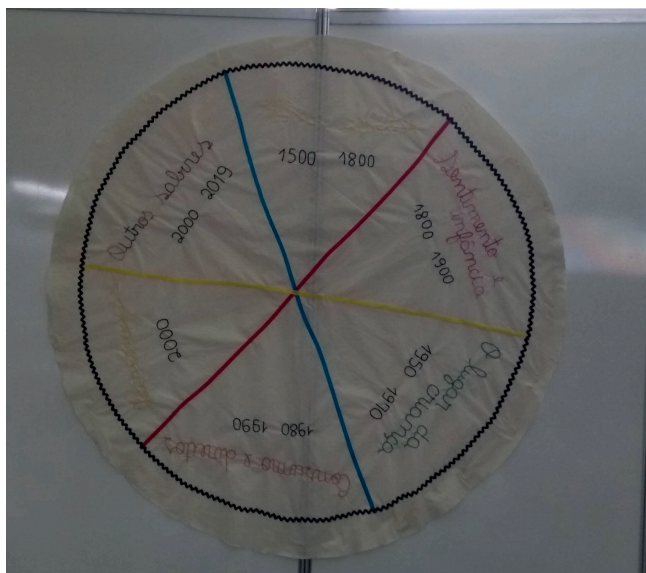 1500 1800
Sentimento e
infância
1800 1900
O lugar da
criança
1950 1970
Consumo e direitos
1980 1990
2000
Outros saberes
2000 2019